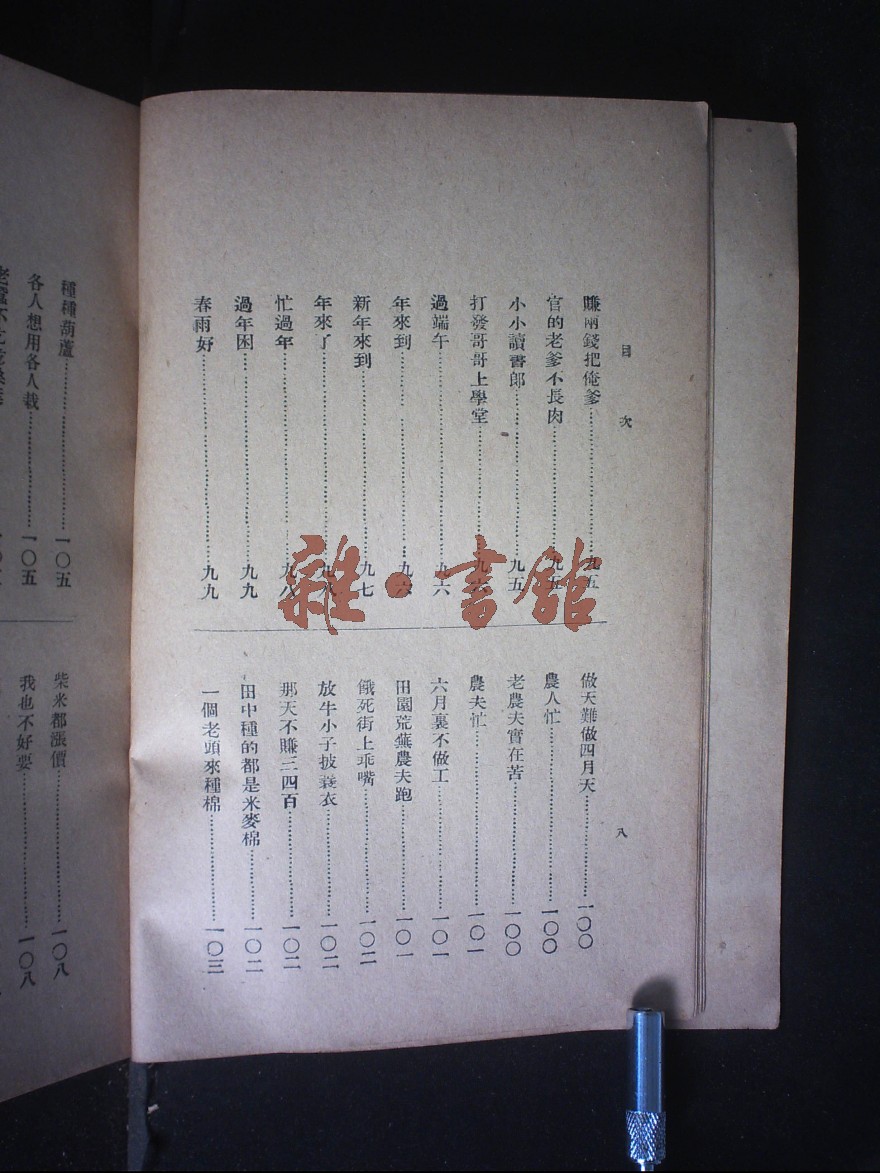 目次
八
賺兩錢把俺爹……九五
官的老爹不長肉……九五
小小讀書郎……九五
打發哥哥上學堂……九六
過端午……九六
年來到……九六
新年來到……九七
年來了……九八
忙過年……九八
過年困……九九
春雨好……九九
做天難做四月天……一〇〇
農人忙……一〇〇
老農夫實在苦……一〇〇
農夫忙……一〇一
六月裏不做工……一〇一
田園荒蕪農夫跑……一〇一
餓死街上乖嘴……一〇二
放牛小子披蓑衣……一〇二
那天不賺三四百……一〇二
田中種的都是米麥棉……一〇二
一個老頭來種棉……一〇三
種種葫蘆……一〇五
各人想用各人栽……一〇五
柴米都漲價……一〇八
我也不好要……一〇八
雜·書館